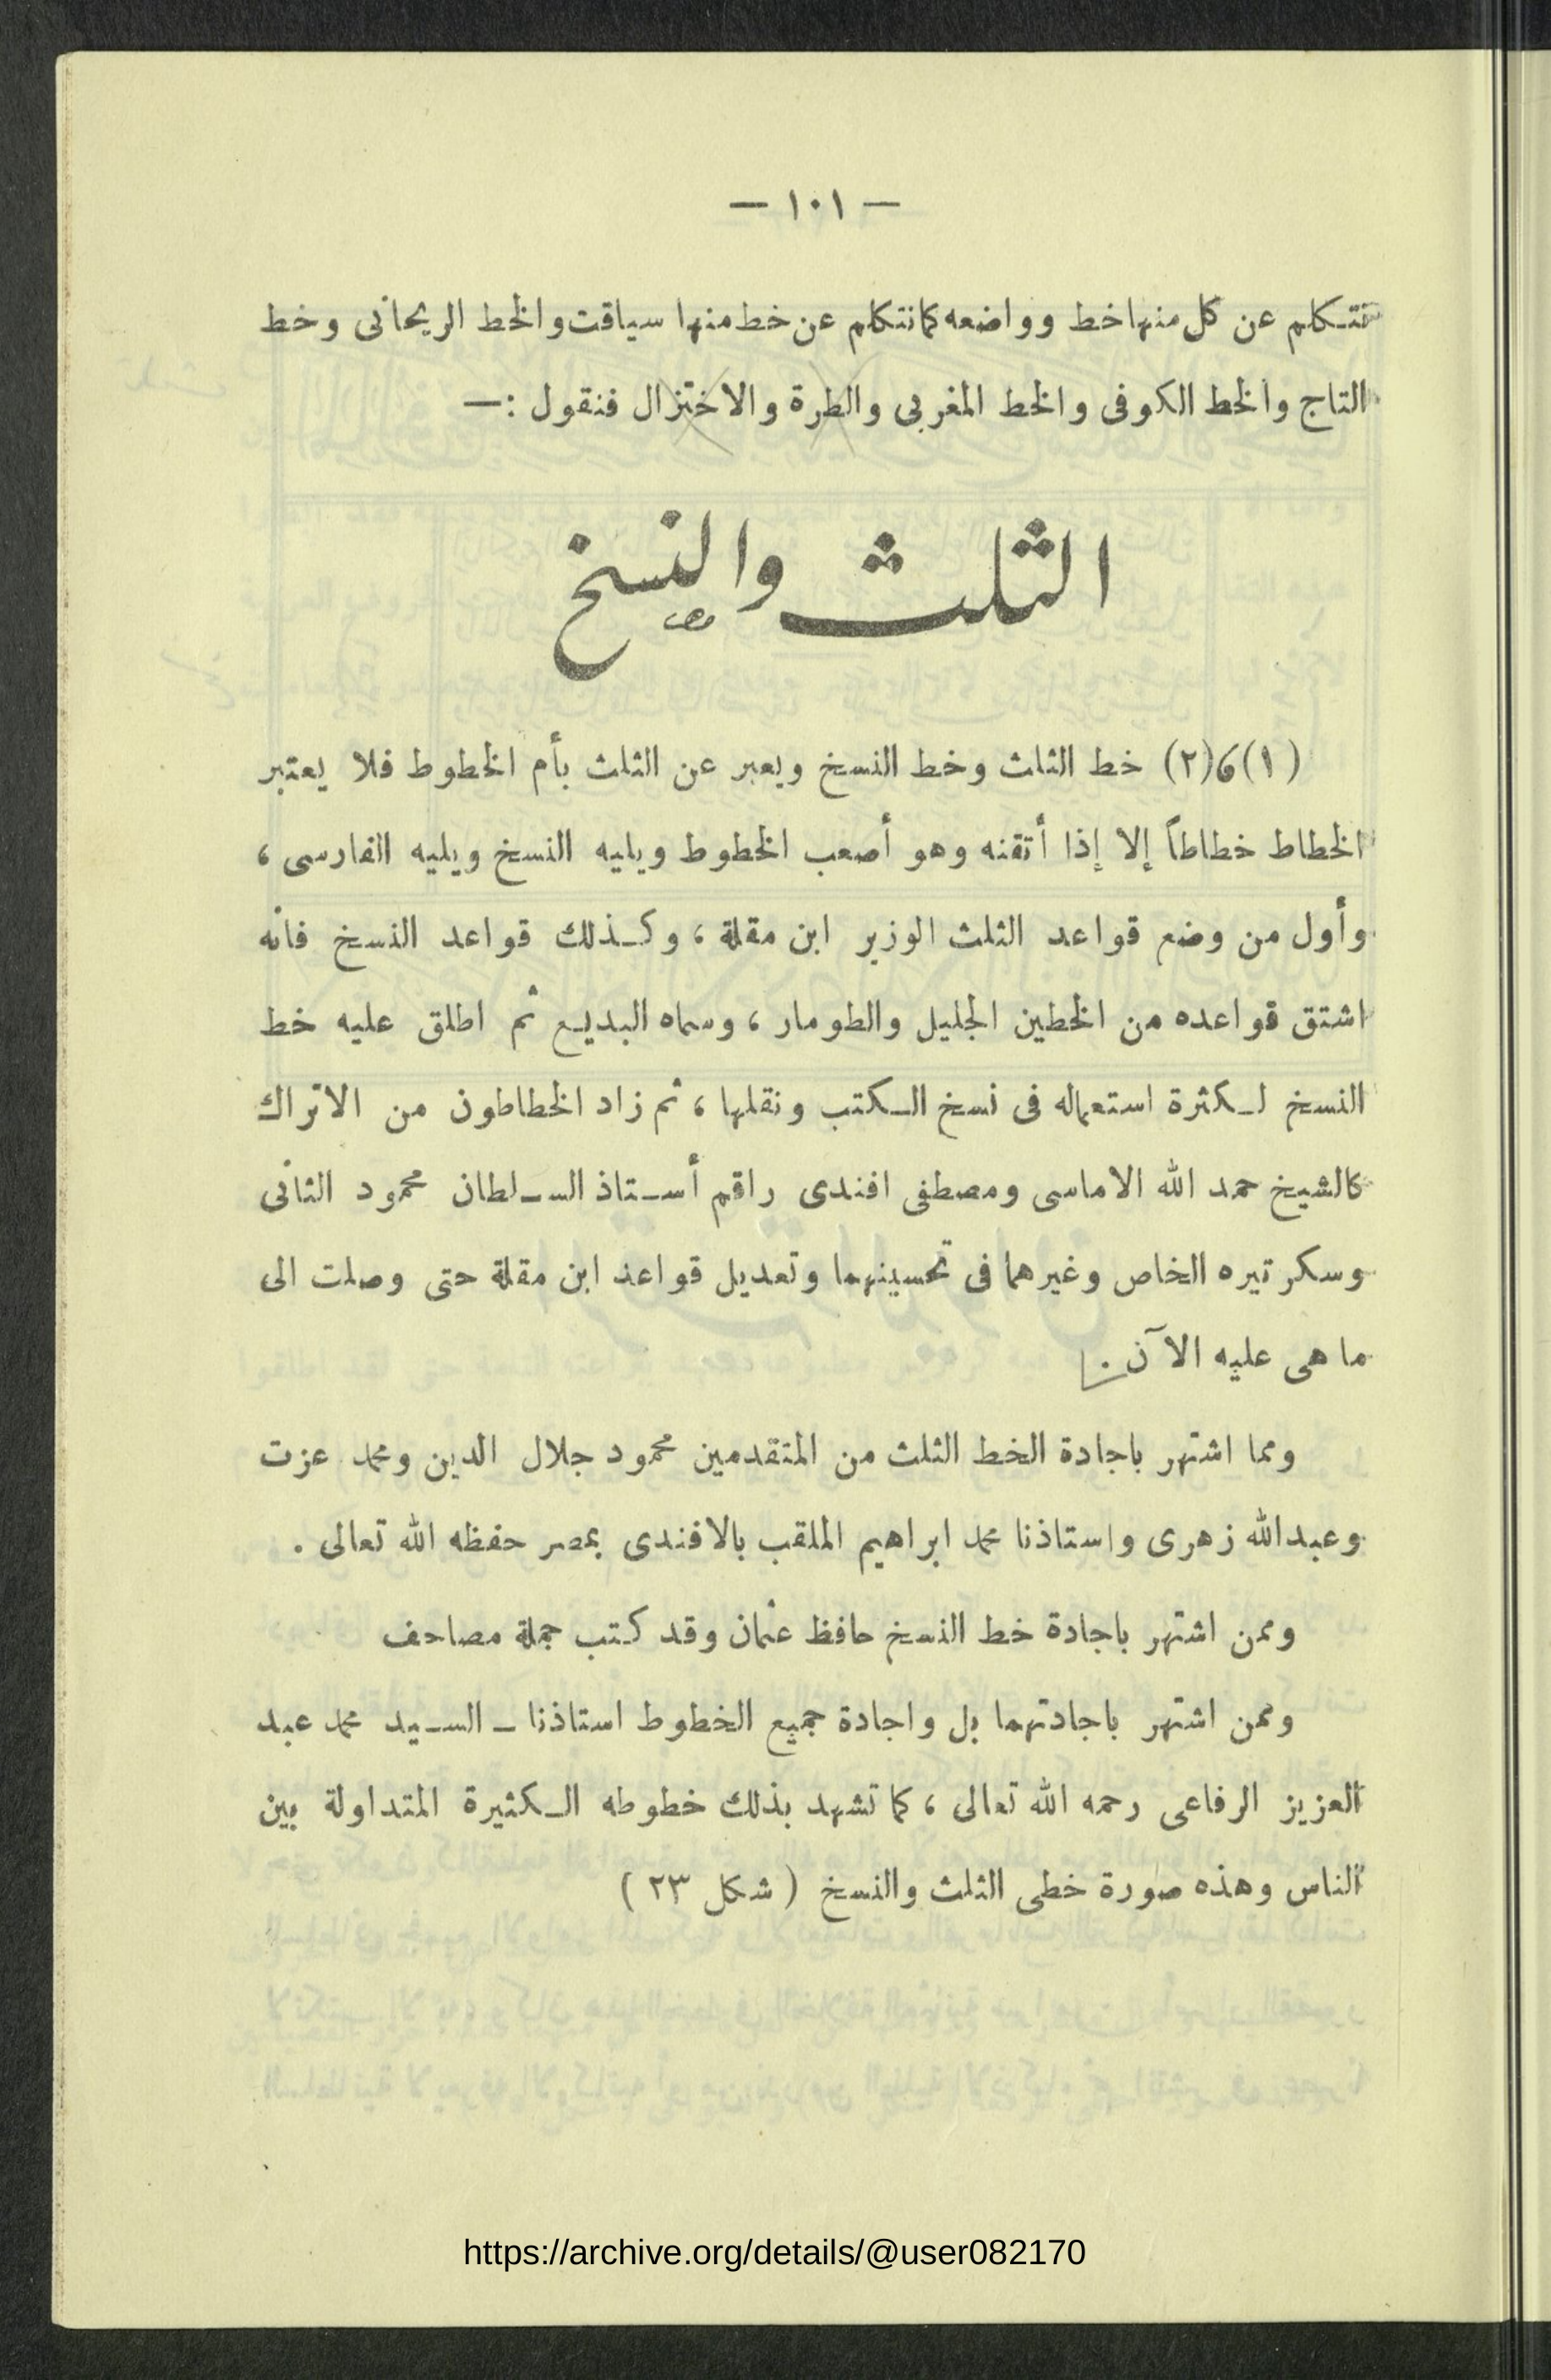 — ١٠١ —
فنتكلم عن كل منها خط وواضعه كما نتكلم عن خط منها سياقت والخط الريحانى وخط
التاج والخط الكوفى والخط المغربى والطرة والاختزال فنقول :—
الثلث والنسخ
(١)،(٢) خط الثلث وخط النسخ ويعبر عن الثلث بأم الخطوط فلا يعتبر
الخطاط خطاطاً إلا إذا أتقنه وهو أصعب الخطوط ويليه النسخ ويليه الفارسى ،
وأول من وضع قواعد الثلث الوزير ابن مقلة ، وكذلك قواعد النسخ فانه
اشتق قواعده من الخطين الجليل والطومار ، وسماه البديع ثم اطلق عليه خط
النسخ لكثرة استعماله فى نسخ الكتب ونقلها ، ثم زاد الخطاطون من الاتراك
كالشيخ حمد الله الاماسى ومصطفى افندى راقم أستاذ السلطان محمود الثانى
وسكرتيره الخاص وغيرهما فى تحسينهما وتعديل قواعد ابن مقلة حتى وصلت الى
ما هى عليه الآن .
ومما اشتهر باجادة الخط الثلث من المتقدمين محمود جلال الدين ومحمد عزت
وعبدالله زهرى واستاذنا محمد ابراهيم الملقب بالافندى بمصر حفظه الله تعالى .
وممن اشتهر باجادة خط النسخ حافظ عثمان وقد كتب جملة مصاحف
وممن اشتهر باجادتهما بل واجادة جميع الخطوط استاذنا ـ السيد محمد عبد
العزيز الرفاعى رحمه الله تعالى ، كما تشهد بذلك خطوطه الكثيرة المتداولة بين
الناس وهذه صورة خطى الثلث والنسخ ( شكل ٢٣ )
https://archive.org/details/@user082170